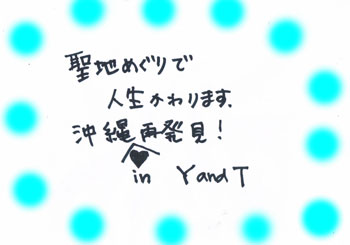 聖地めぐりで
人生かわります.
沖縄再発見!
♥
in YandT